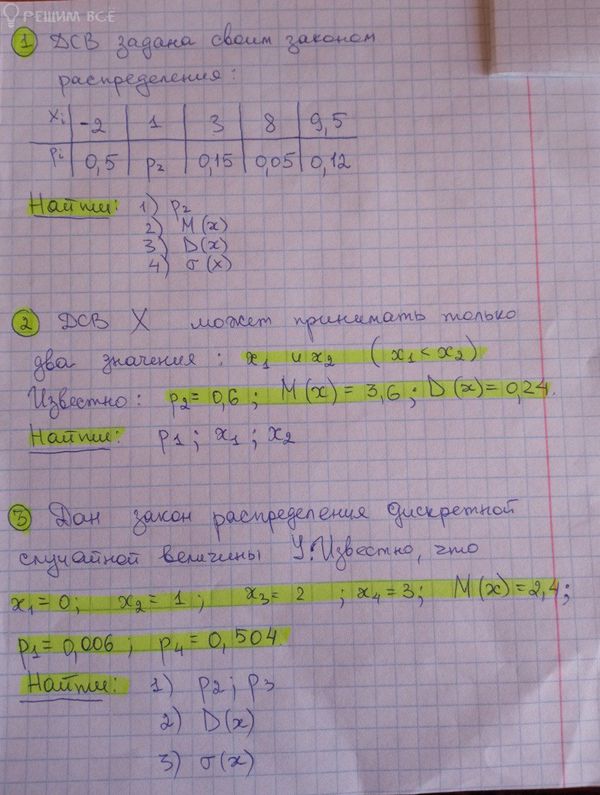 РЕШИМ ВСЁ
1 ДСВ задана своим законом
распределения:
xi | -2 | 1 | 3 | 8 | 9,5
pi | 0,5 | p2 | 0,15 | 0,05 | 0,12
Найти: 1) p2
2) M(x)
3) D(x)
4) σ(x)
2 ДСВ X может принимать только
два значения: x1 и x2 (x1 < x2)
Известно: p2 = 0,6; M(x) = 3,6; D(x) = 0,24.
Найти: p1; x1; x2
3 Дан закон распределения дискретной
случайной величины Y. Известно, что
x1 = 0; x2 = 1; x3 = 2; x4 = 3; M(x) = 2,4;
p1 = 0,006; p4 = 0,504.
Найти: 1) p2; p3
2) D(x)
3) σ(x)